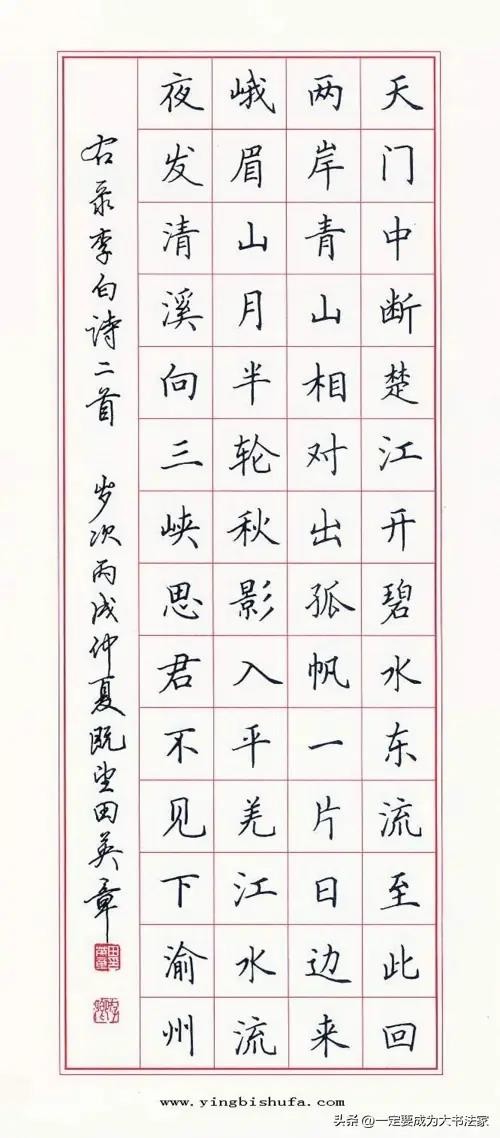 天门中断楚江开碧水东流至此回
两岸青山相对出孤帆一片日边来
峨眉山月半轮秋影入平羌江水流
夜发清溪向三峡思君不见下渝州
右录李白诗二首 岁次丙戌仲夏既望田英章
www.yingbishufa.com
头条 @一定要成为大书法家